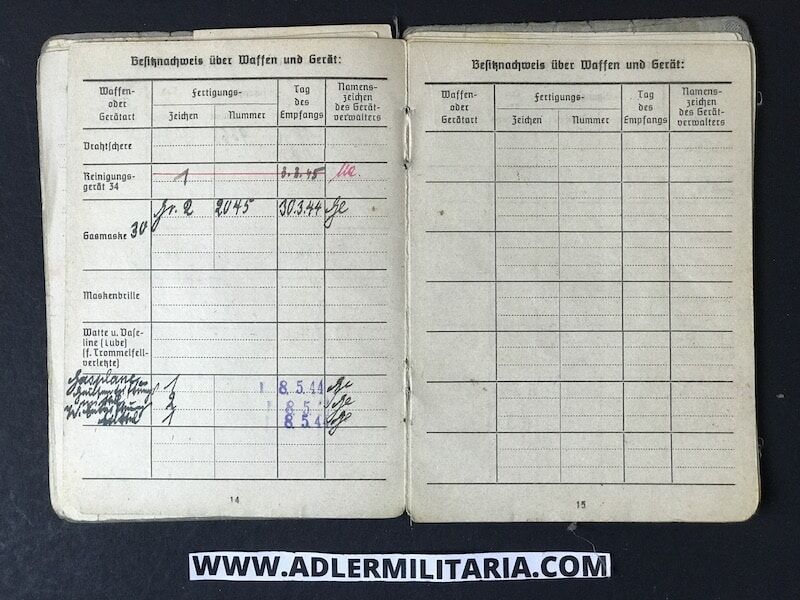 Besitznachweis über Waffen und Gerät:
Waffen-
oder
Gerätart
Fertigungs-
Zeichen
Nummer
Tag
des
Empfangs
Namens-
zeichen
des Gerät-
verwalters
Drahtschere
Reinigungs-
gerät 34
1
3.2.45
Gasmaske 30
Gr. 2
2045
30.3.44
Ge
Maskenbrille
Watte u. Vase-
line (Tube)
(f. Trommelfell-
verletzte)
Gasplane
1
8.5.44
Ge
2
8.5.
Ge
1
8.5.4
Ge
14
Besitznachweis über Waffen und Gerät:
Waffen-
oder
Gerätart
Fertigungs-
Zeichen
Nummer
Tag
des
Empfangs
Namens-
zeichen
des Gerät-
verwalters
15
WWW.ADLERMILITARIA.COM